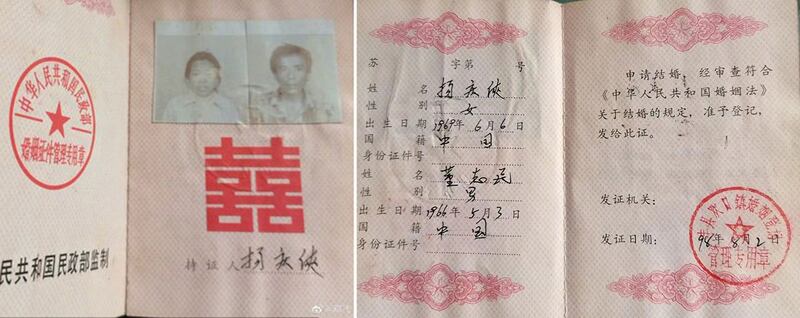 中华人民共和国民政部
婚姻证件管理专用章
民共和国民政部监制
囍
持证人 杨庆侠
苏 字第 号
姓名 杨庆侠
性别 女
出生日期 1969年6月6日
国籍 中国
身份证件号
姓名 董志民
性别 男
出生日期 1966年5月3日
国籍 中国
身份证件号
申请结婚,经审查符合
《中华人民共和国婚姻法》
关于结婚的规定,准予登记,
发给此证。
发证机关:
发证日期: 98年8月2日
欢口镇婚姻登记
管理专用章